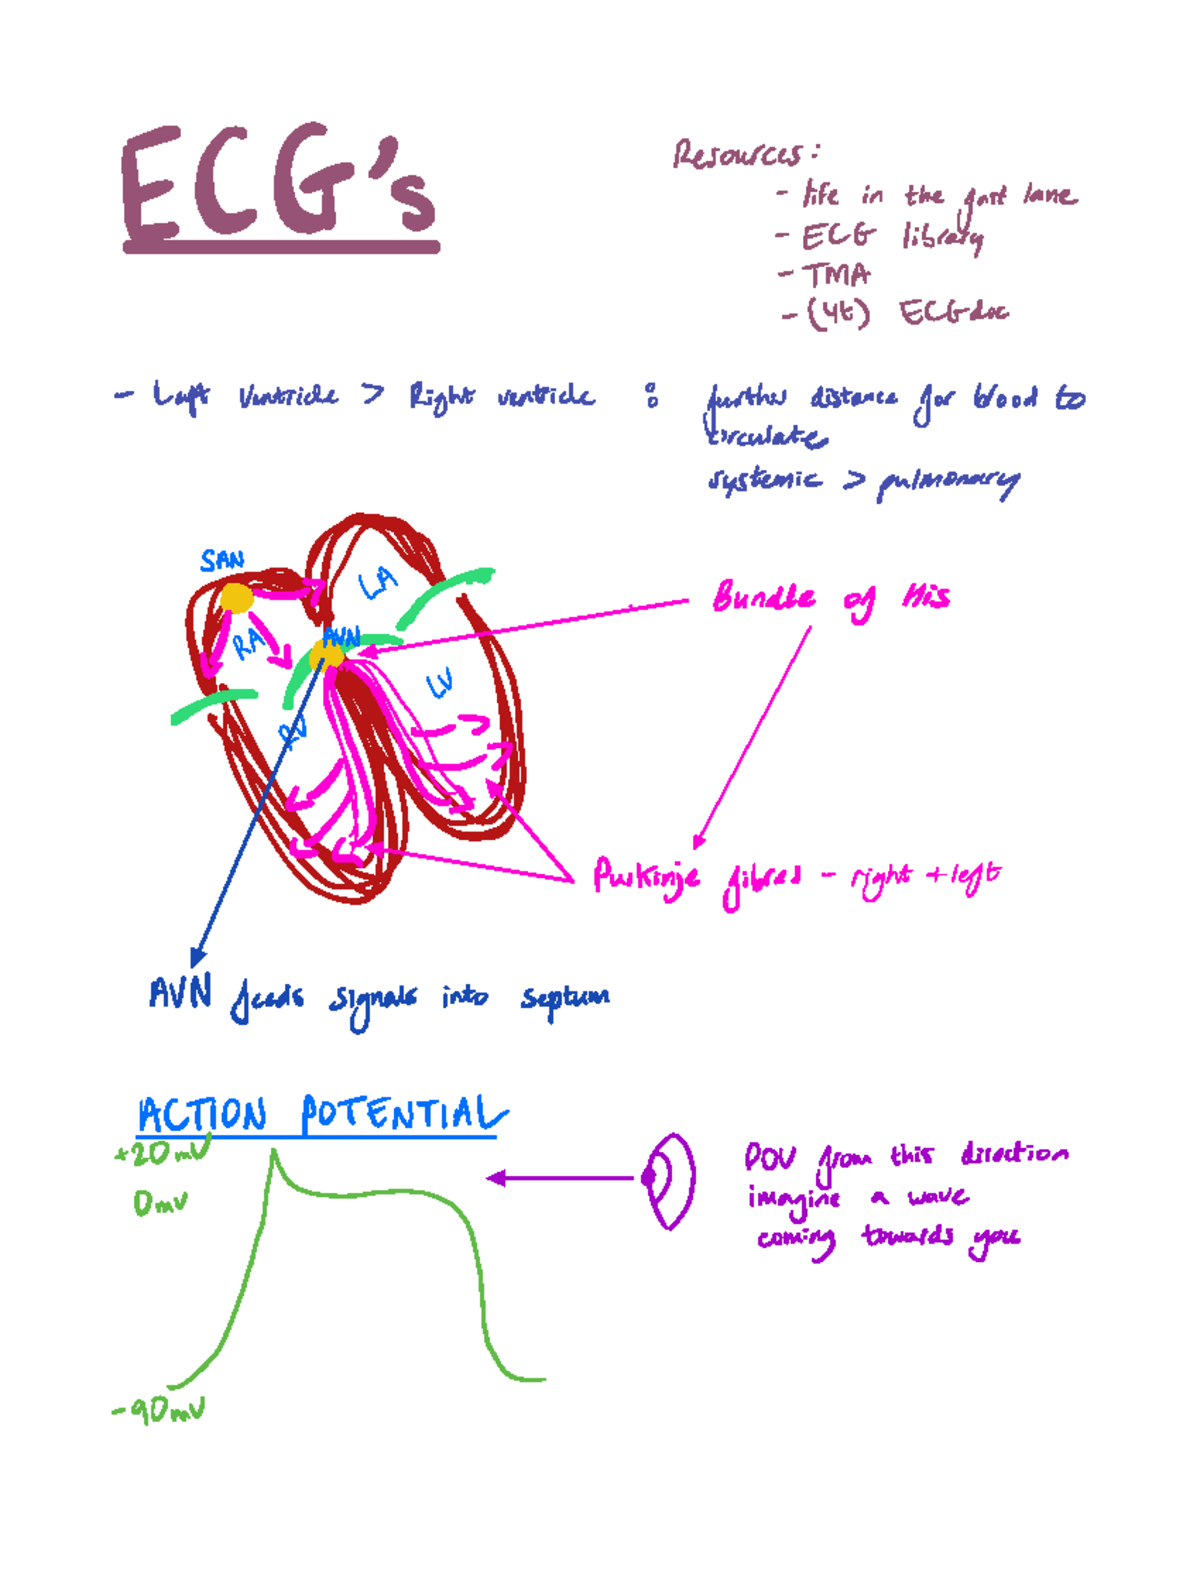 ECG's
Resources:
- life in the fast lane
- ECG library
- TMA
- (yt) ECGdoc
- Left Ventricle > Right ventricle : further distance for blood to
circulate
systemic > pulmonary
SAN
LA
RA
AVN
LV
RV
Bundle of His
Purkinje fibres - right + left
AVN feeds signals into septum
ACTION POTENTIAL
+20mV
0mV
-90mV
POV from this direction
imagine a wave
coming towards you